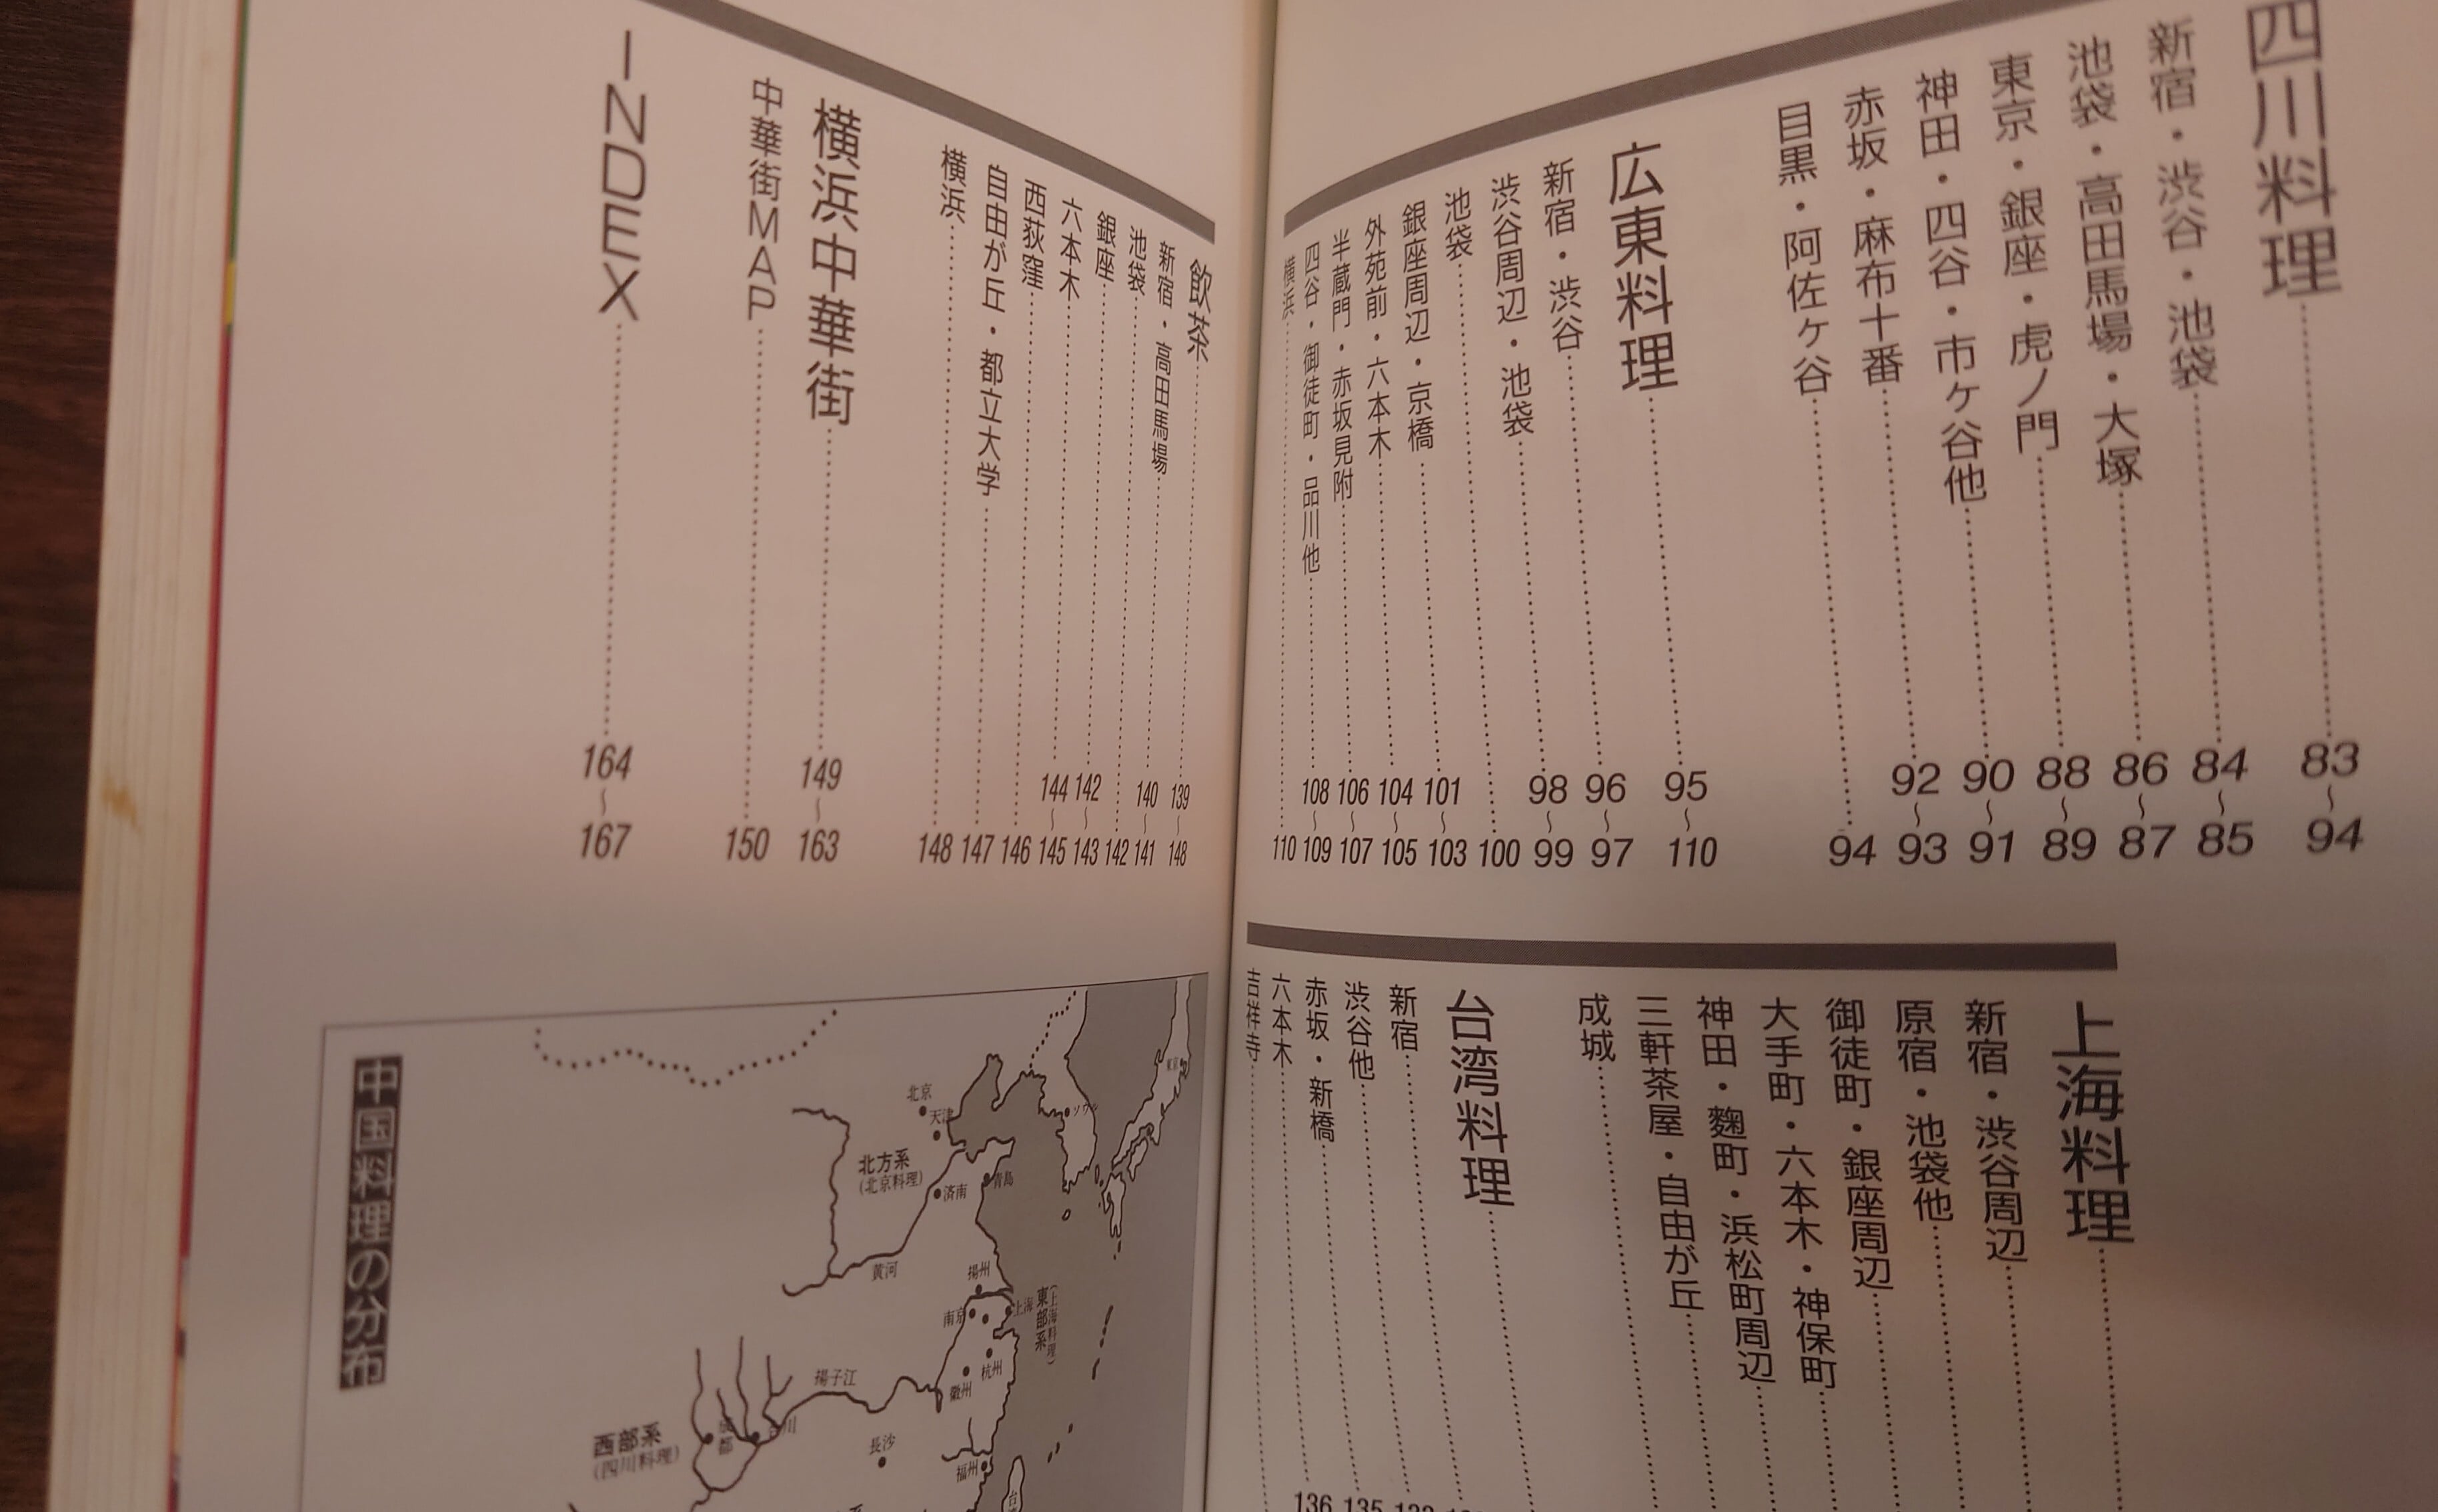 四川料理 83〜94
新宿・渋谷・池袋 84〜85
池袋・高田馬場・大塚 86〜87
東京・銀座・虎ノ門 88〜89
神田・四谷・市ヶ谷他 90〜91
赤坂・麻布十番 92〜93
目黒・阿佐ヶ谷 94
広東料理 95〜110
新宿・渋谷 96〜97
渋谷周辺・池袋 98〜99
池袋 100
銀座周辺・京橋 101〜103
外苑前・六本木 104〜105
半蔵門・赤坂見附 106〜107
四谷・御徒町・品川他 108〜109
横浜 110
上海料理
新宿・渋谷周辺
原宿・池袋他
御徒町・銀座周辺
大手町・六本木・神保町
神田・麴町・浜松町周辺
三軒茶屋・自由が丘
成城
台湾料理
新宿
渋谷他 135
赤坂・新橋 136
六本木
吉祥寺
飲茶 139〜148
新宿・高田馬場 140〜141
池袋 142
銀座 142〜143
六本木 144〜145
西荻窪 146
自由が丘・都立大学 147
横浜 148
横浜中華街 149〜163
中華街MAP 150
INDEX 164〜167
中国料理の分布
東京
ソウル
北京
天津
北方系
(北京料理)
済南
青島
黄河
揚州
南京
上海
東部系
(上海料理)
杭州
徽州
揚子江
西部系
(四川料理)
成都
長沙
福州